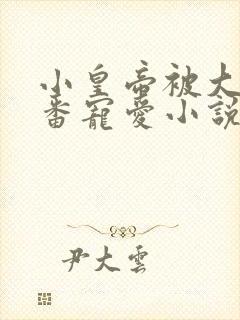 小皇帝被大
番寵愛小說
尹大雲